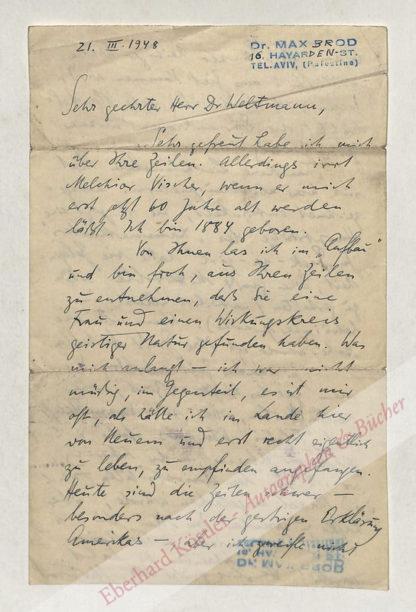 21. III. 1948
Dr. MAX BROD
16, HAYARDEN-ST.
TEL. AVIV, (Palestine)
Sehr geehrter Herr Dr. Weltmann,
Sehr gefreut habe ich mich
über Ihre Zeilen. Allerdings irrt
Melchior Vischer, wenn er mich
erst jetzt 60 Jahre alt werden
läßt. Ich bin 1884 geboren.
Von Ihnen las ich im „Aufbau"
und bin froh, aus Ihren Zeilen
zu entnehmen, daß Sie eine
Frau und einen Wirkungskreis
geistiger Natur gefunden haben. Was
mich anlangt – ich war nicht
müßig, im Gegenteil, es ist mir
oft, als hätte ich im Lande hier
von Neuem und erst recht eigentlich
zu leben, zu empfinden angefangen.
Heute sind die Zeiten schwer –
besonders nach der gestrigen Erklärung
Amerikas – aber ich zweifle nicht
Dr. MAX BROD
Eberhard Köstler - Autographen & Bücher